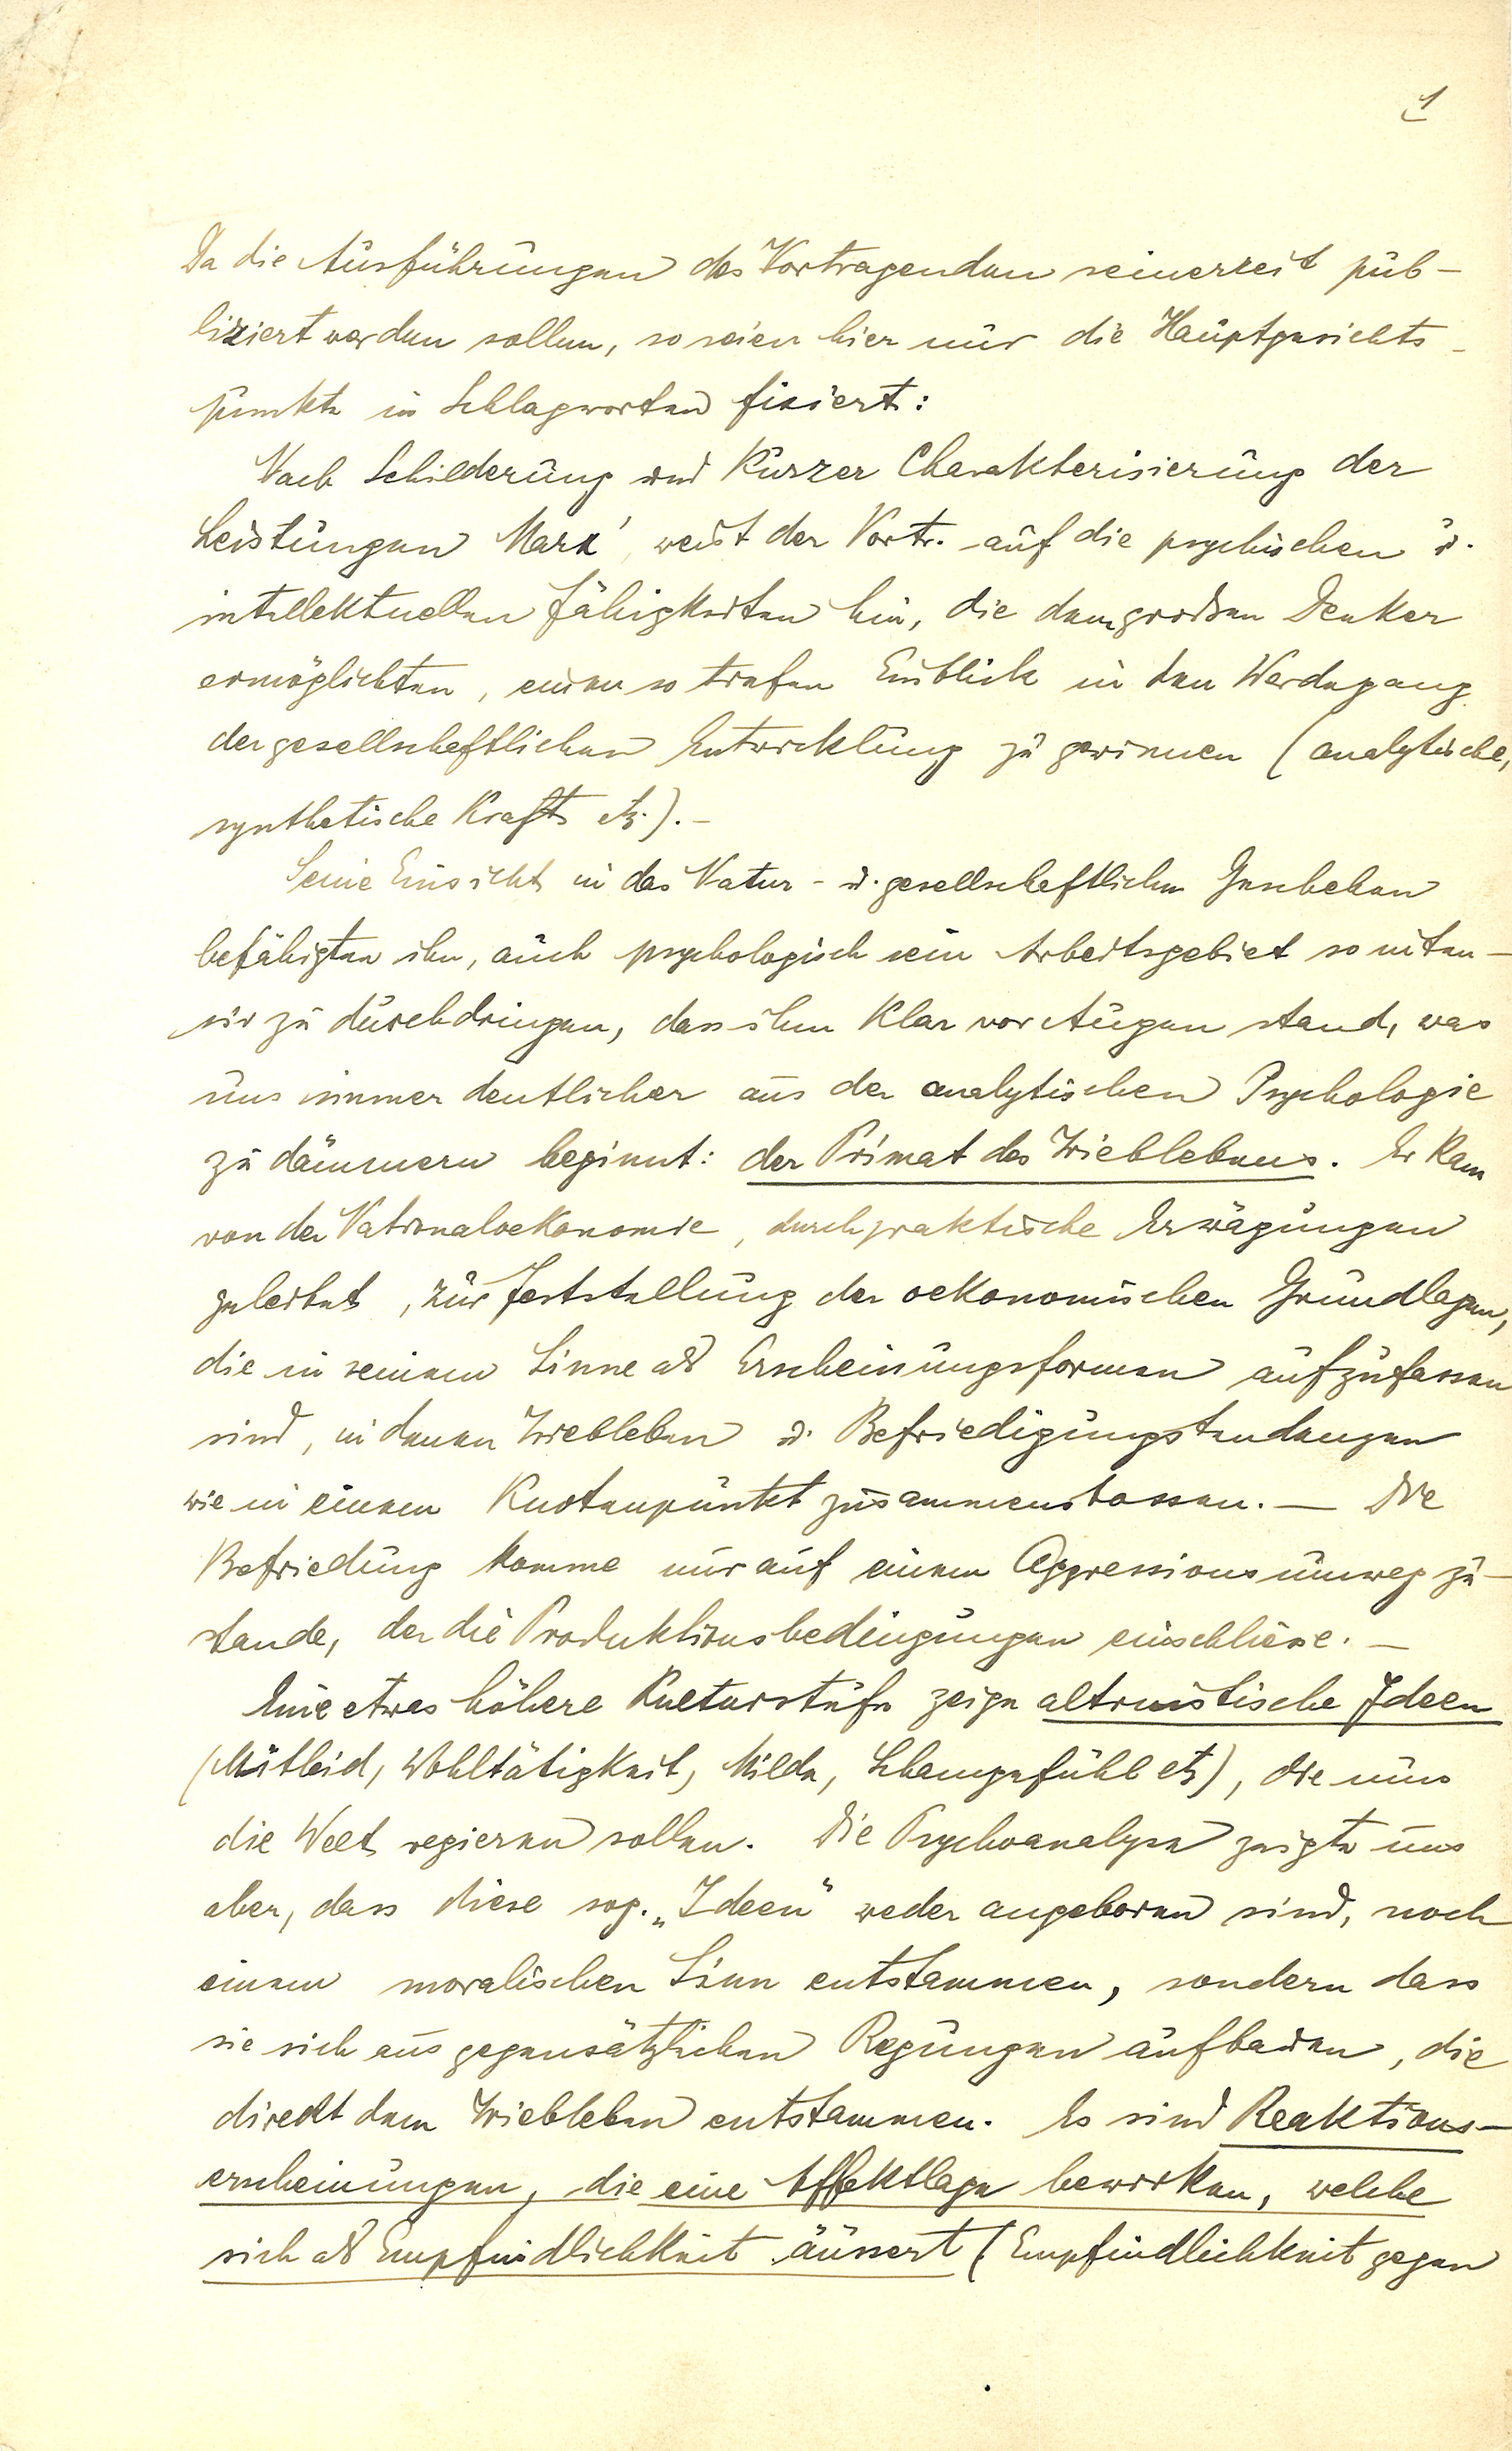 1
Da die Ausführungen des Vortragenden seinerzeit pub-
liziert werden sollen, so seien hier nur die Hauptgesichts-
punkte in Schlagworten fixiert:
Nach Schilderung und kurzer Charakterisierung der
Leistungen Marx' weist der Vortr. auf die psychischen u.
intellektuellen Fähigkeiten hin, die dem grossen Denker
ermöglichten, einen so tiefen Einblick in den Werdegang
der gesellschaftlichen Entwicklung zu gewinnen (analytische,
synthetische Kraft etz.).-
Seine Einsicht in das Natur- u. gesellschaftliche Geschehen
befähigten ihn, auch psychologisch sein Arbeitsgebiet so inten-
siv zu durchdringen, dass ihm klar vor Augen stand, was
uns immer deutlicher aus der analytischen Psychologie
zu dämmern beginnt: der Primat des Trieblebens. Er kam
von der Nationaloekonomie, durch praktische Erwägungen
geleitet, zur Feststellung der oekonomischen Grundlagen,
die in seinem Sinne als Erscheinungsformen aufzufassen
sind, in denen Triebleben u. Befriedigungstendenzen
wie in einem Knotenpunkt zusammenstossen. — Die
Befriedung komme nur auf einem Aggressionsumweg zu-
stande, der die Produktionsbedingungen einschliese. —
Eine etwas höhere Kulturstufe zeige altruistische Ideen
(Mitleid, Wohltätigkeit, Milde, Schamgefühl etz), die nun
die Welt regieren sollen. Die Psychoanalyse zeigte uns
aber, dass diese sog. „Ideen" weder angeboren sind, noch
einem moralischen Sinn entstammen, sondern dass
sie sich aus gegensätzlichen Regungen aufbauen, die
direkt dem Triebleben entstammen. Es sind Reaktions-
erscheinungen, die eine Affektlage bewirken, welche
sich als Empfindlichkeit äussert (Empfindlichkeit gegen